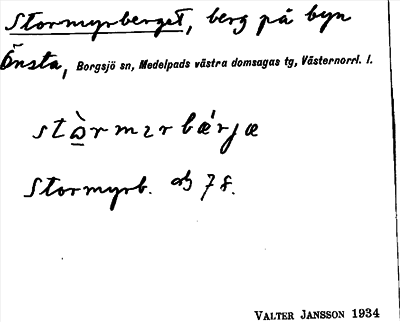 Stormyrberget, berg på byn
Önsta, Borgsjö sn, Medelpads västra domsagas tg, Västernorrl. l.
stɔ̀rmɪrbǽrjæ
Stormyrb. ab 78.
VALTER JANSSON 1934